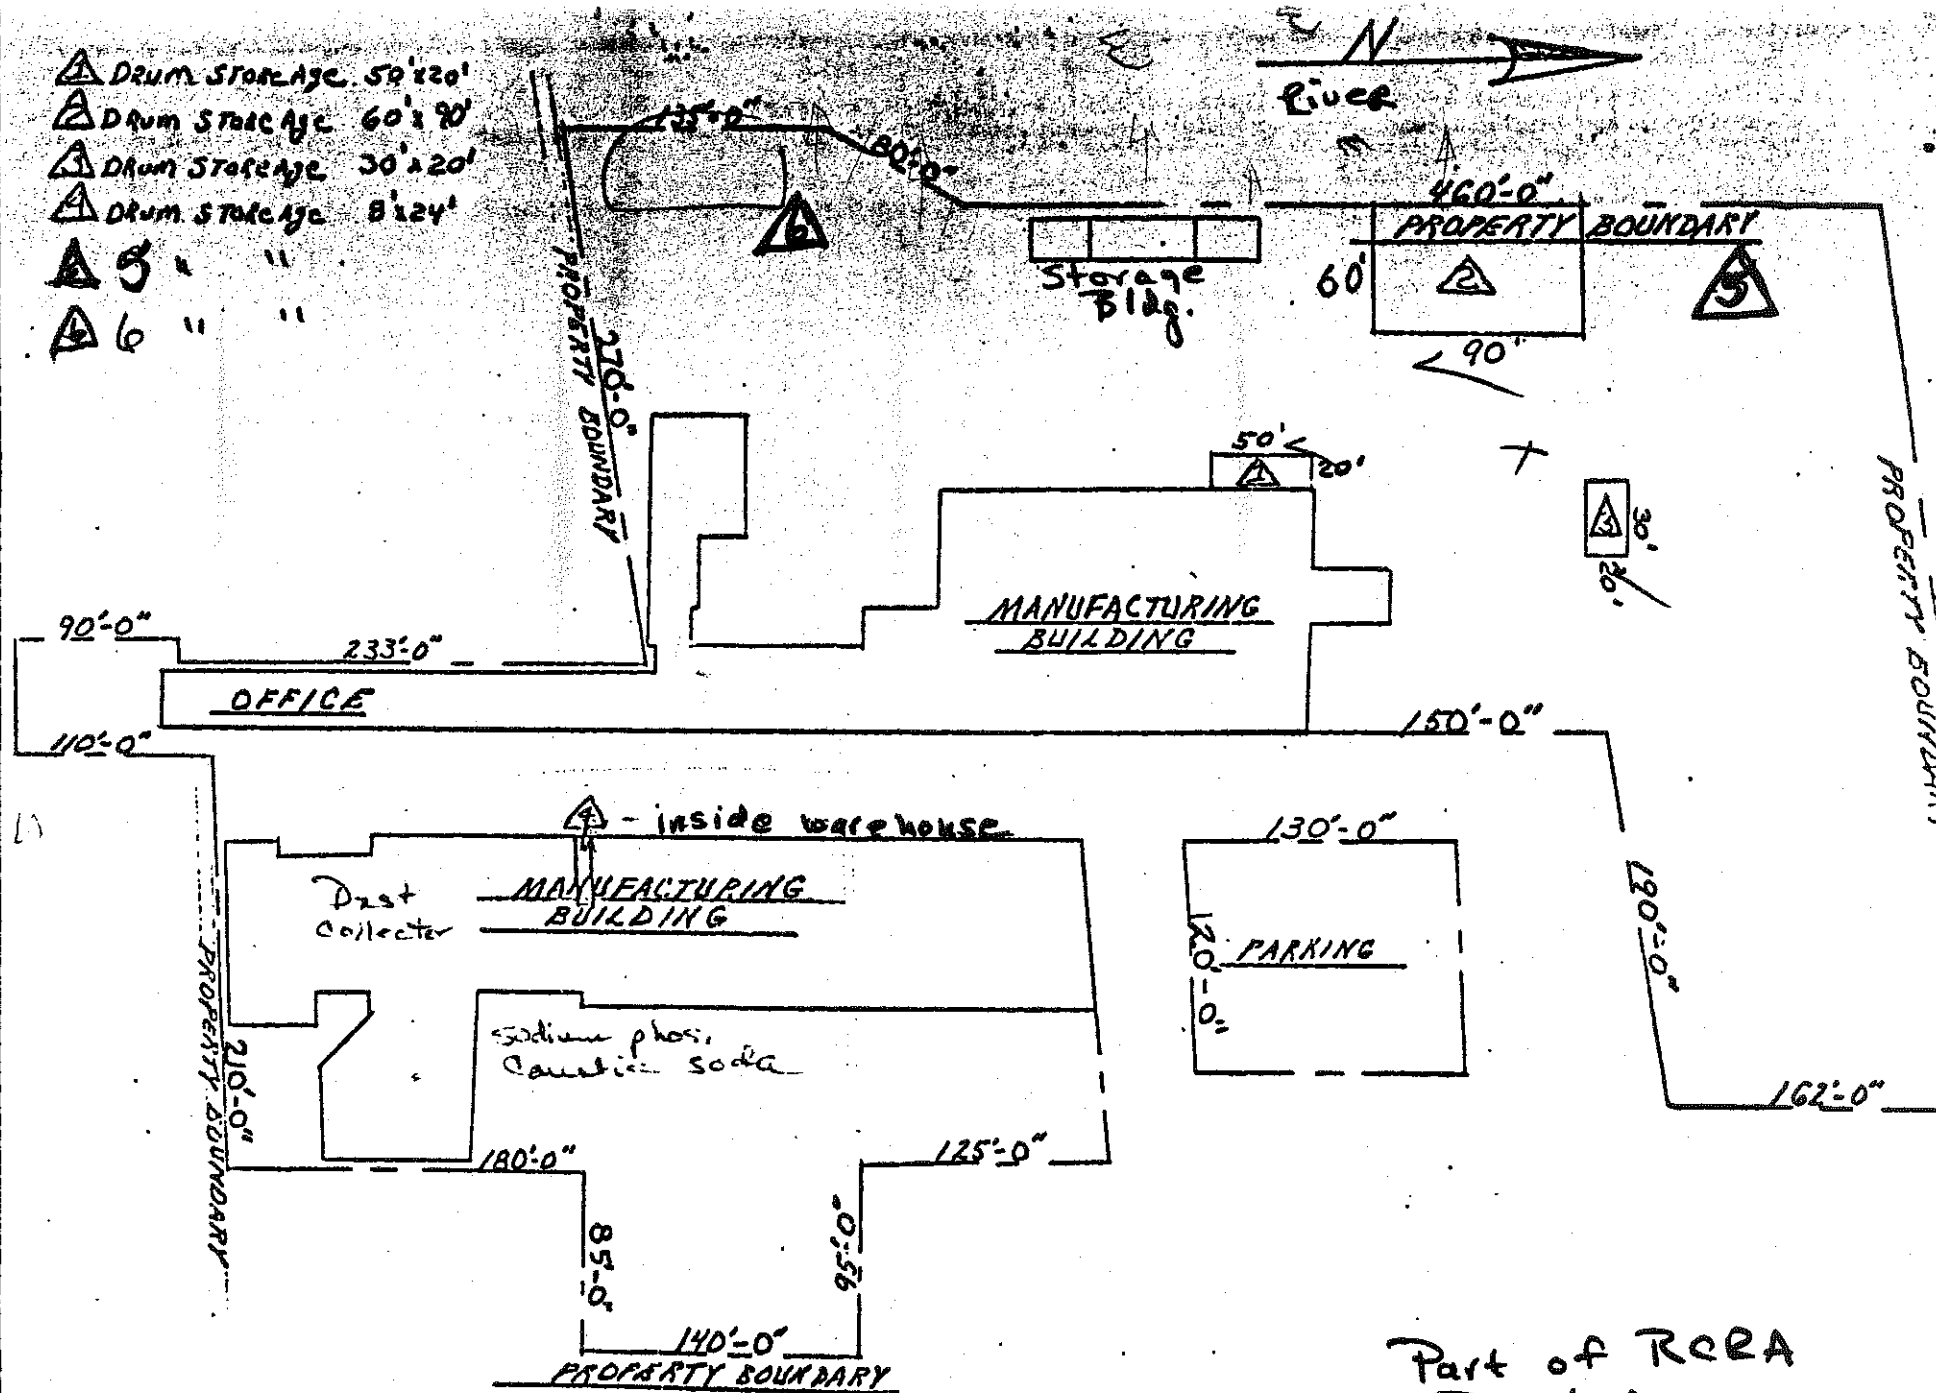 1 Drum Storeage 50'x20'
2 Drum Storeage 60'x90'
3 Drum Storeage 30'x20'
4 Drum Storeage 8'x24'
5 " "
6 6 " "
N
River
135'-0"
80'-0"
460'-0"
PROPERTY BOUNDARY
6
Storage
Bldg.
60'
2
90'
5
PROPERTY BOUNDARY
270'-0"
50'
1
20'
3
30'
20'
PROPERTY BOUNDARY
MANUFACTURING
BUILDING
90'-0"
233'-0"
OFFICE
110'-0"
150'-0"
4 - inside warehouse
130'-0"
Dust
Collector
MANUFACTURING
BUILDING
120'-0"
PARKING
190'-0"
PROPERTY BOUNDARY
210'-0"
Sodium phos.
Caustic soda
162'-0"
180'-0"
125'-0"
85'-0"
95'-0"
140'-0"
PROPERTY BOUNDARY
Part of RCRA